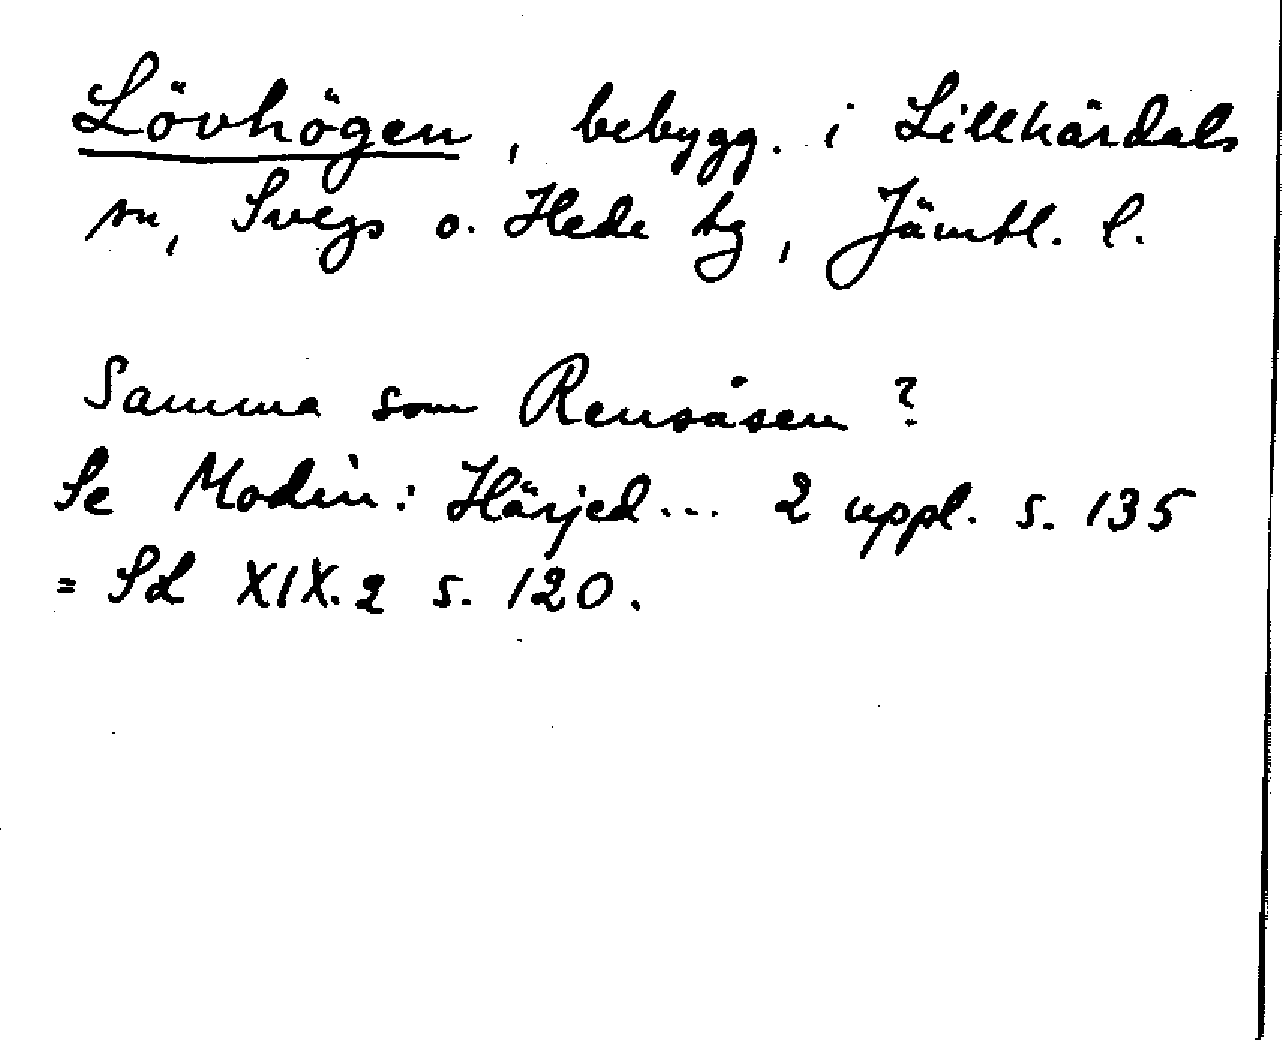 Lövhögen, bebygg. i Lillhärdals
sn, Svegs o. Hede tg, Jämtl. l.
Samma som Rensåsen?
Se Modin: Härjed... 2 uppl. s. 135
= SL XIX.2 s. 120.